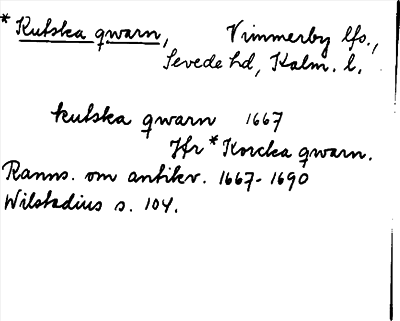 * Kutska qwarn, Vimmerby lfs.,
Sevede hd, Kalm. l.
kutska qwarn 1667
Jfr * Korcka qwarn.
Ranns. om antikv. 1667-1690
Wilstadius s. 104.